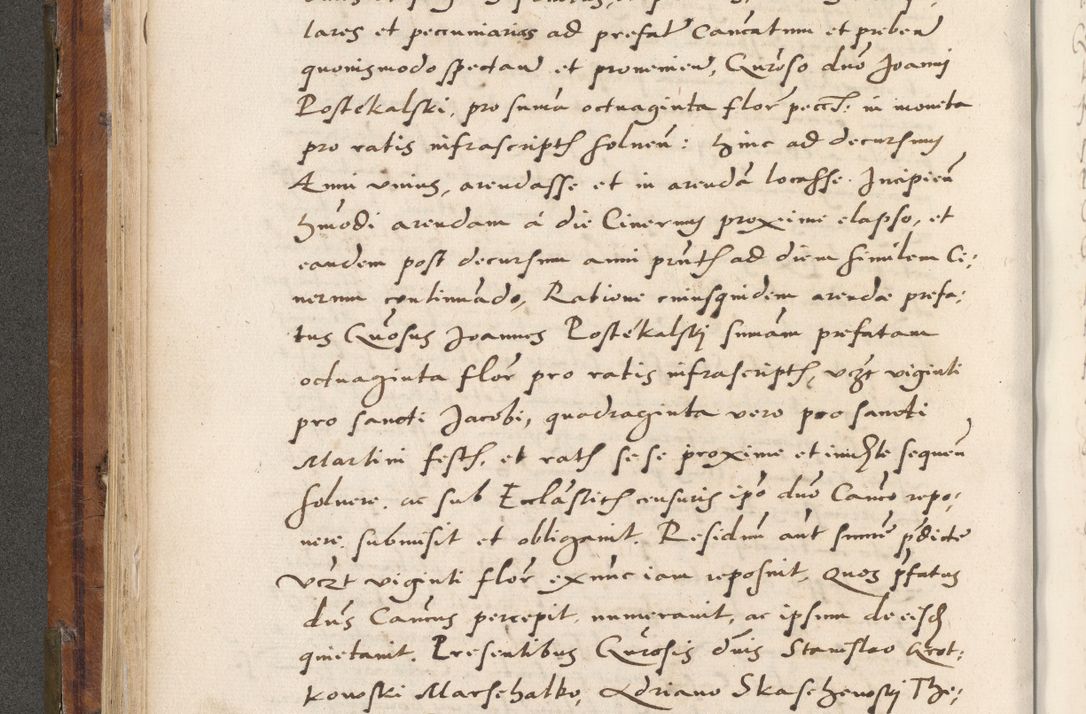 lares et peccuniarias ad prefat Cancatum et preben
quouismodo spectan et prouenien, Gnroso dno Joanni
Postekalski, pro suma octuaginta flor pecc: in moneta
pro ratis infrascriptis soluen: hinc ad decursum
Anni vnius, arendasse et in arendam locasse. Incipien
hmodi arendam a die Cinerum proxime elapso, et
eandem post decursum anni pntis ad diem similem Ci:
nerum continuado, Ratione cuiusquidem arendae prefa:
tus Gnrosus Joannes Postekalskj sumam prefatam
octuaginta flor pro ratis infrascriptis, vczt viginti
pro sancti Jacobi, quadraginta vero pro sancti
Martini festis, et ratis sese proxime et immte sequen
soluere, ac sub Ecclasticis censuris ipso dno Canco repo:
nere, submisit et obligauit. Residuum aut sume pdicte
vczt viginti flor ex nunc iam reposuit, quos pfatus
dns Cancus percepit, numerauit, ac ipsum de eisdem
quietauit. Presentibus Gnrosis dnis Stanislao Krot:
kowski Marschalko, Adriano Skaschewskj The: